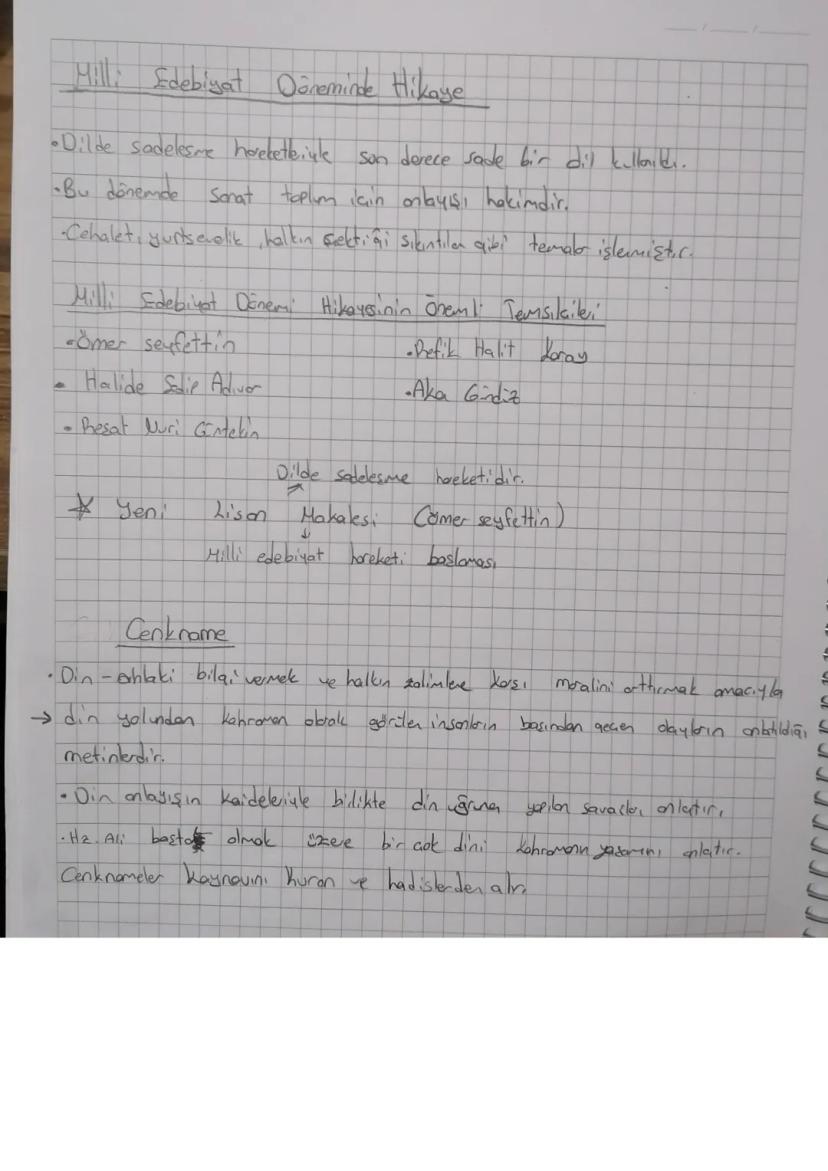 Milli Edebiyat Döneminde Hikaye
• Dilde sadeleşme hareketleriyle son derece sade bir dil kullanıldı.
• Bu dönemde sanat toplum için anlayışı hakimdir.
• Cehalet, yurtseverlik, halkın çektiği sıkıntılar gibi temalar işlemiştir.
Milli Edebiyat Dönemi Hikayesinin Önemli Temsilcileri
• Ömer seyfettin • Refik Halit Karay
• Halide Edip Adıvar • Aka Gündüz
• Resat Nuri Güntekin
Dilde sadelesme hareketidir.
☆ Yeni Lisan Makalesi (Ömer seyfettin)
↓
Milli edebiyat hareketi baslaması
Cenkname
• Din - ahlaki bilgi vermek ve halkın zalimlere karsı moralini arttırmak amacıyla
→ din yolundan kahraman olarak görülen insanların basından geçen olayların anlatıldığı
metinlerdir.
• Din anlayısın kaideleriyle birlikte din uğruna yapılan savasları anlatır.
• Hz. Ali basta olmak üzere bir çok dini kahramanın yasamını anlatır.
Cenknameler kaynağını kuran ve hadislerden alır.